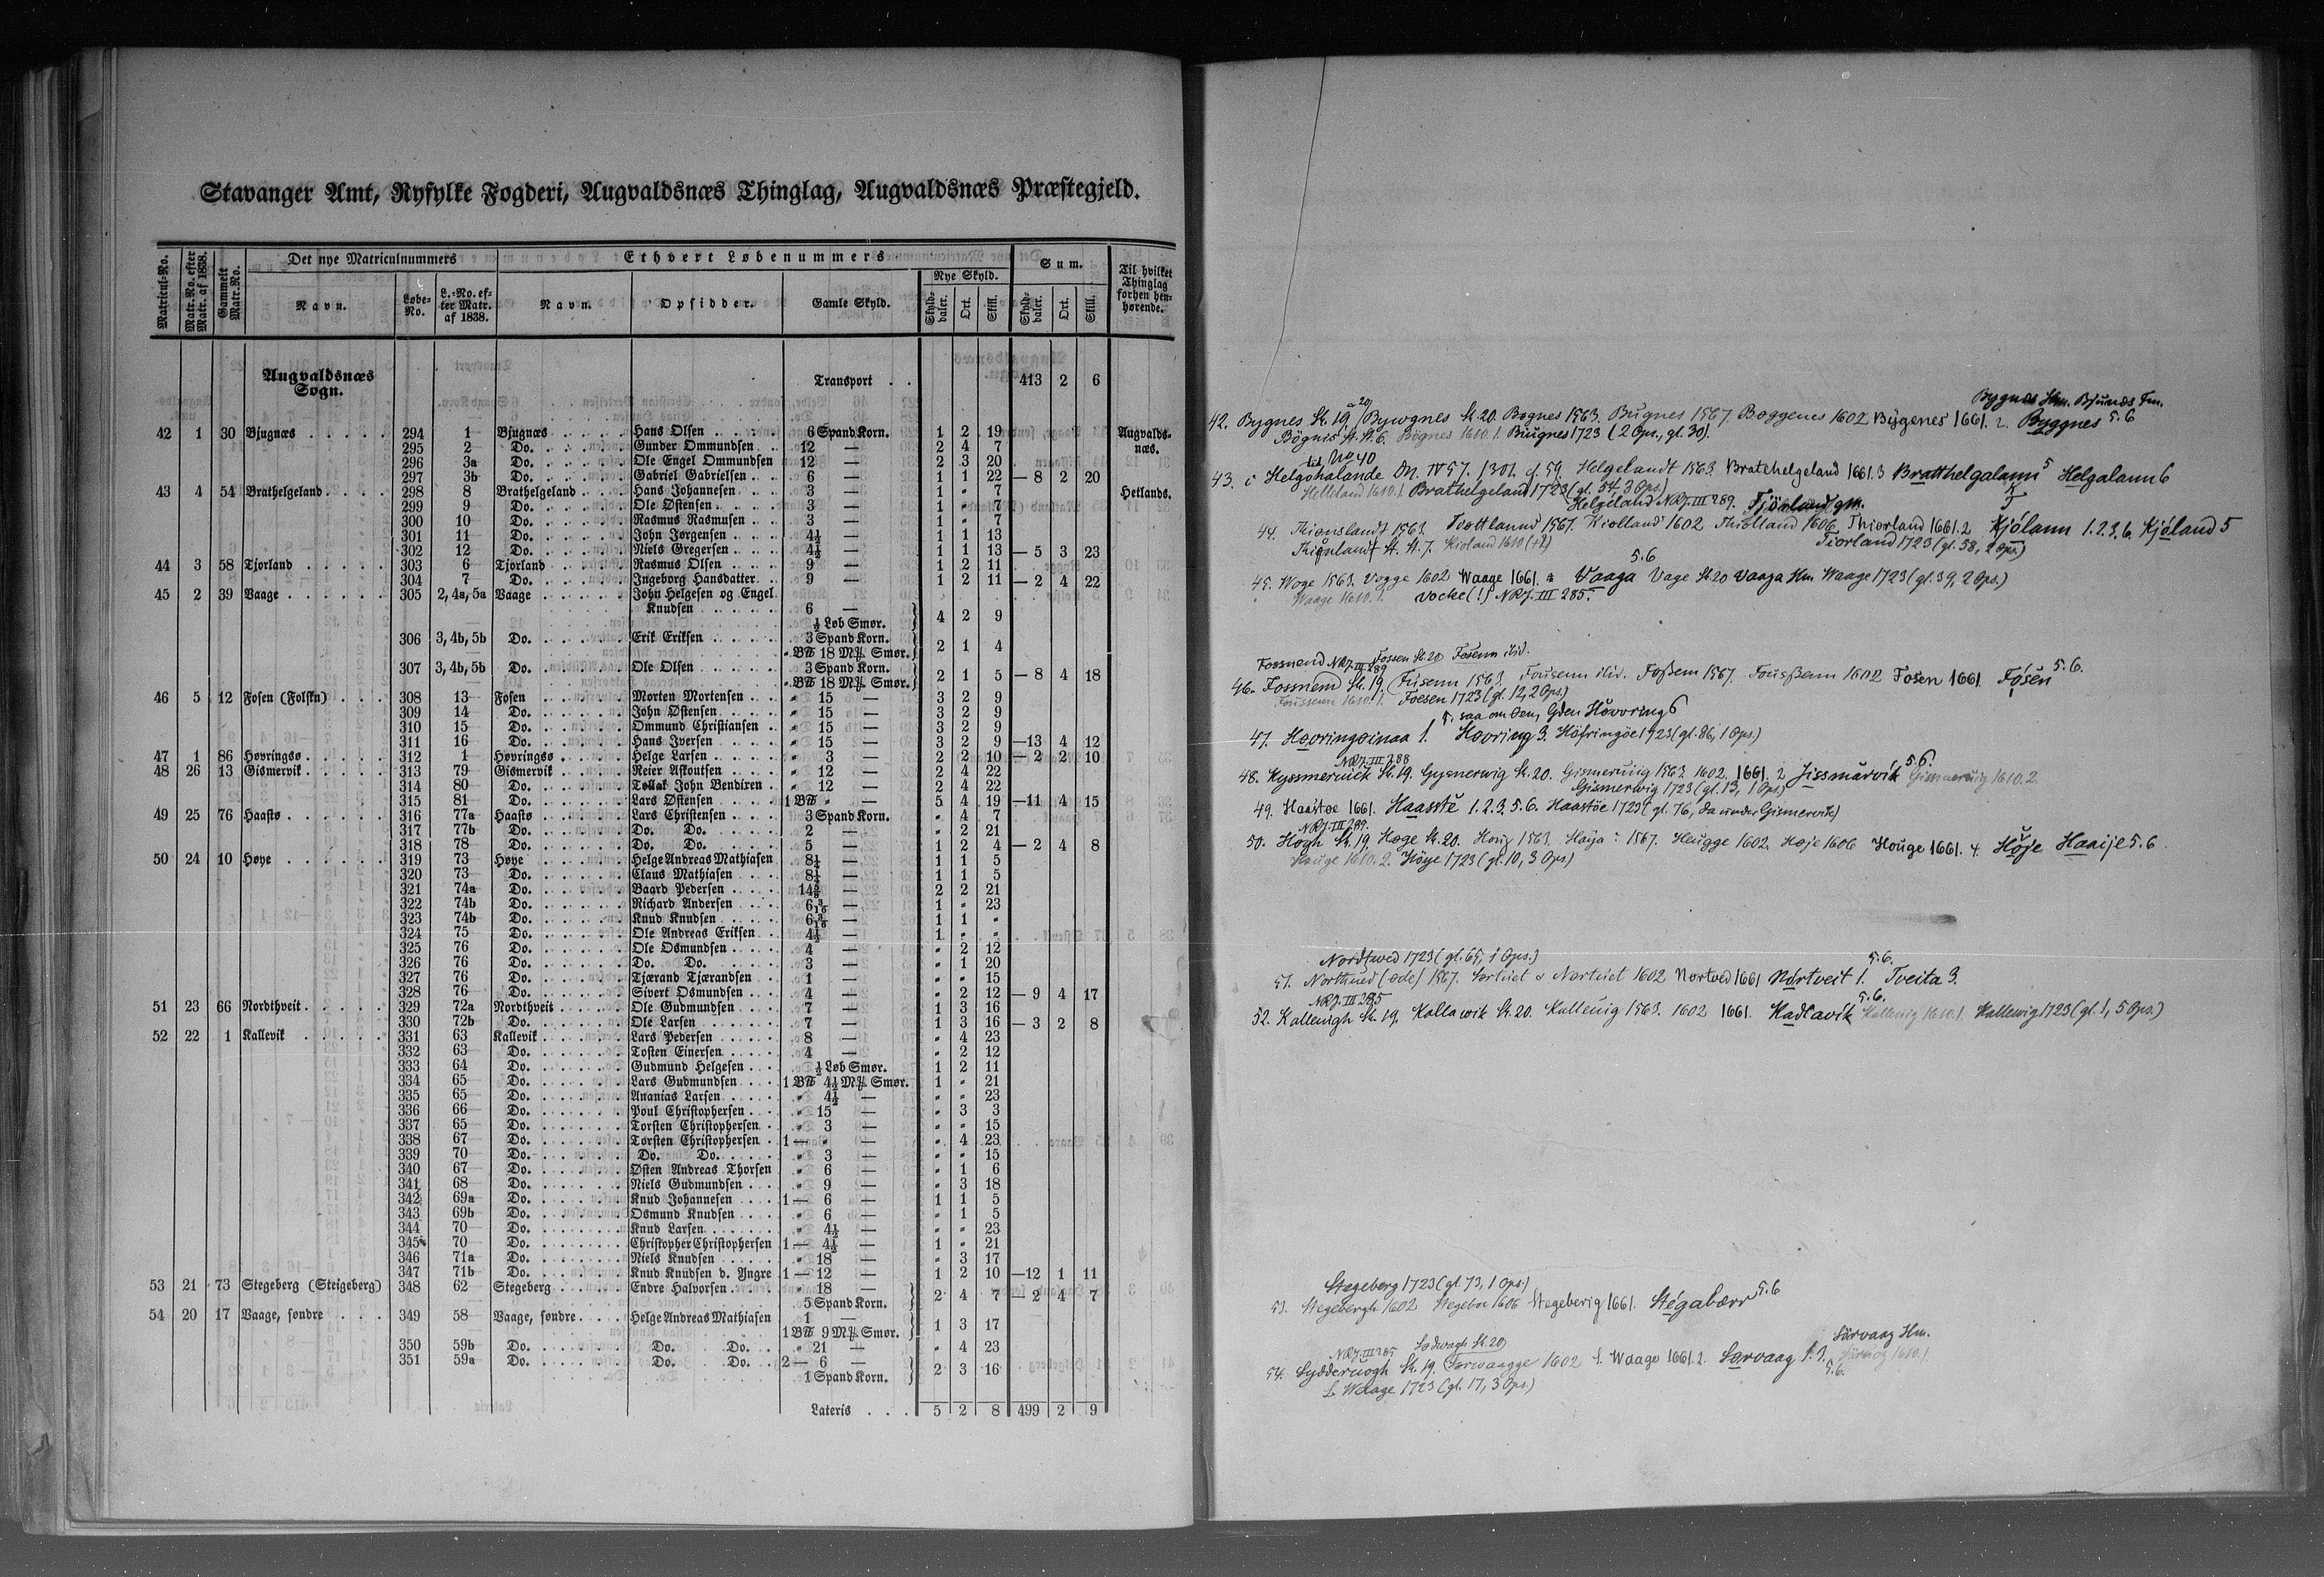 Stavanger Amt, Ryfylke Fogderi, Augvaldsnæs Thinglag, Augvaldsnæs Præstegjeld.
Matricul-No. | Matr.No. efter Matr. af 1838. | Gammelt Matr.No. | Det nye Matriculnummers | Ethvert Løbenummers | Sum. | Til hvilket Thinglag forhen henhørende.
Navn. | Løbe-No. | L.-No. efter Matr. af 1838. | Navn. | Opsidder. | Gamle Skyld. | Nye Skyld. | Skylddaler. | Ort. | Skill. | Skylddaler. | Ort. | Skill.
Augvaldsnæs Sogn. Transport . . 413 2 6
42 1 30 Bjugnæs . . . . . 294 1 Bjugnæs . . . . . Hans Olsen . . . . . 6 Spand Korn. 1 2 19 Augvaldsnæs.
295 2 Do. . . . . . Gunder Ommundsen . . 12 — 2 4 7
296 3a Do. . . . . . Ole Engel Ommundsen 12 — 2 3 20
297 3b Do. . . . . . Gabriel Gabrielsen . . . 6 — 1 1 22 — 8 2 20
43 4 54 Brathelgeland . . . . 298 8 Brathelgeland . . . . Hans Johannesen . . . 3 — 1 " 7 Hetlands.
299 9 Do. . . . . . Ole Østensen . . . . 3 — 1 " 7
300 10 Do. . . . . . Rasmus Rasmusen . . . 3 — 1 " 7
301 11 Do. . . . . . John Jørgensen . . . . 4½ — 1 1 13
302 12 Do. . . . . . Niels Gregersen . . . . 4½ — 1 1 13 — 5 3 23
44 3 58 Tjorland . . . . . 303 6 Tjorland . . . . . Rasmus Olsen . . . . 9 — 1 2 11
304 7 Do. . . . . . Ingeborg Hansdatter . . 9 — 1 2 11 — 2 4 22
45 2 39 Vaage . . . . . . 305 2, 4a, 5a Vaage . . . . . . John Helgesen og Engel
Knudsen . . . . . 6 —
½ Løb Smør. 4 2 9
306 3, 4b, 5b Do. . . . . . Erik Eriksen . . . . . 3 Spand Korn.
" B℔ 18 M℔ Smør. 2 1 4
307 3, 4b, 5b Do. . . . . . Ole Olsen . . . . . 3 Spand Korn.
" B℔ 18 M℔ Smør. 2 1 5 — 8 4 18
46 5 12 Fosen (Folskn) . . . 308 13 Fosen . . . . . . Morten Mortensen . . . " 15 — 3 2 9
309 14 Do. . . . . . John Østensen . . . . " 15 — 3 2 9
310 15 Do. . . . . . Ommund Christiansen . . " 15 — 3 2 9
311 16 Do. . . . . . Hans Iversen . . . . " 15 — 3 2 9 —13 4 12
47 1 86 Høvringsø . . . . . 312 1 Høvringsø . . . . . Helge Larsen . . . . " 3 — 2 2 10 — 2 2 10
48 26 13 Gismervik . . . . . 313 79 Gismervik . . . . . Reier Askoutsen . . . " 12 — 2 4 22
314 80 Do. . . . . . Tollak John Bendixen . . " 12 — 2 4 22
315 81 Do. . . . . . Lars Østensen . . . . 1 B℔ " — 5 4 19 —11 4 15
49 25 76 Haastø . . . . . . 316 77a Haastø . . . . . . Lars Christensen . . . 3 Spand Korn. " 4 7
317 77b Do. . . . . . Do. Do. . . . 2 — " 2 21
318 78 Do. . . . . . Do. Do. . . . 5 — 1 2 4 — 2 4 8
50 24 10 Høye . . . . . . 319 73 Høye . . . . . . Helge Andreas Mathiasen 8¼ — 1 1 5
320 73 Do. . . . . . Claus Mathiasen . . . 8¼ — 1 1 5
321 74a Do. . . . . . Baard Pedersen . . . . 14⅝ — 2 2 21
322 74b Do. . . . . . Richard Andersen . . . 6 3/16 — 1 " 23
323 74b Do. . . . . . Knud Knudsen . . . . 6 3/16 — 1 1 "
324 75 Do. . . . . . Ole Andreas Eriksen . . 4½ — 1 " "
325 76 Do. . . . . . Ole Osmundsen . . . . 4 — " 2 12
326 76 Do. . . . . . Do. Do. . . . 3 — " 1 20
327 76 Do. . . . . . Tjærand Tjærandsen . . 1 — " " 15
328 76 Do. . . . . . Sivert Osmundsen . . . 4 — " 2 12 — 9 4 17
51 23 66 Nordthveit . . . . . 329 72a Nordthveit . . . . . Ole Gudmundsen . . . 7 — 1 3 16
330 72b Do. . . . . . Ole Larsen . . . . . 7 — 1 3 16 — 3 2 8
52 22 1 Kallevik . . . . . 331 63 Kallevik . . . . . Lars Pedersen . . . . 8 — " 4 23
332 63 Do. . . . . . Tosten Einersen . . . . 4 — " 2 12
333 64 Do. . . . . . Gudmund Helgesen . . . ½ Løb Smør. 1 2 11
334 65 Do. . . . . . Lars Gudmundsen . . . 1 B℔ 4½ M℔ Smør. 1 " 21
335 65 Do. . . . . . Ananias Larsen . . . . " 4½ — " " 23
336 66 Do. . . . . . Poul Christophersen . . . " 15 — " 3 3
337 65 Do. . . . . . Torsten Christophersen . . " 3 — " " 15
338 67 Do. . . . . . Torsten Christophersen . 1 — " — " 4 23
339 70 Do. . . . . . Do. Do. . . . " 3 — " " 15
340 67 Do. . . . . . Østen Andreas Thorsen " 6 — " 1 6
341 68 Do. . . . . . Niels Gudmundsen . . . " 9 — " 3 18
342 69a Do. . . . . . Knud Johannesen . . . 1 — 6 — 1 1 5
343 69b Do. . . . . . Osmund Knudsen . . . " 6 — " 1 5
344 70 Do. . . . . . Knud Larsen . . . . " 4½ — " " 23
345 70 Do. . . . . . Christopher Christophersen 1 — 4½ — 1 " 21
346 71a Do. . . . . . Niels Knudsen . . . . " 18 — " 3 17
347 71b Do. . . . . . Knud Knudsen d. Yngre 1 — 12 — 1 2 10 —12 1 11
53 21 73 Stegeberg (Steigeberg) 348 62 Stegeberg . . . . . Endre Halvorsen . . . " 18 —
5 Spand Korn. 2 4 7 — 2 4 7
54 20 17 Vaage, søndre . . . 349 58 Vaage, søndre . . . . Helge Andreas Mathiasen 1 —
1 B℔ 9 M℔ Smør. 1 3 17
350 59b Do. . . . . . Do. Do. . . " 21 — " 4 23
351 59a Do. . . . . . Do. Do. . . 2 — 6 —
1 Spand Korn. 2 3 16
Lateris . . . 5 2 8 499 2 9
Bygnes Hm. Bjunæs Fm.
42. Bygnes St. 19, Bywgnes St. 20. Bognes 1563. Bugnes 1567. Boggenes 1602 Bÿgenes 1661. 2. Byggnes 5.6
Bögnis St. St. 6. Bögnes 1610. 1. Biugnes 1723 (2 Ops., gl. 30).
til No 40
43. i Helgohalande Dn. IV 57. 1301. cf. 59. Helgelandt 1563. Bratehelgeland 1661. 3 Bratthelgalann 5 Helgalann 6
Helleland 1610. 1 Brathelgeland 1723 (gl. 54, 3 Ops.)
Helgeland NRJ. III 289. Tjörland gm.
44. Thionslandt 1563. Tiottlannd 1567. Kiolland 1602 Thiolland 1606. Thiorland 1661. 2 Kjólann 1.2.3.6. Kjóland 5
Thionlandt St. St. 7. Kioland 1610 (+2) Tiorland 1723 (gl. 58, 2 Ops.)
5.6
45. Woge 1563. Vogge 1602 Waage 1661. 2 Vaaga Vage St. 20 Vaaga Hm. Waage 1723 (gl. 39, 2 Ops.)
Waage 1610. 1. Vocke (!) NRJ. III 285.
Fossnend NRJ. III 289 Fossen St. 20 Fosenn ibid.
46. Fossnem St. 19. Fusenn 1563. Fousenn ibid. Foßem 1567. Fousßenn 1602 Fosen 1661. Fósén 5.6.
Foussenn 1610. 1. Foesen 1723 (gl. 12, 2 Ops.)
5. saa om Øen, Gden Hòvoring 6
47. Hovringoinaa 1. Hovring 3. Höfringöe 1723 (gl. 86, 1 Ops.)
NRJ. III 288 5.6.
48. Kyssmeruick St. 19. Gysnerwig St. 20. Gismeruiig 1563. 1602. 1661. 2 Jissmårvik Gismeruig 1610. 2.
Gismerwig 1723 (gl. 13, 1 Ops)
49. Haastøe 1661. Haasstè 1.2.3.5.6. Haastöe 1723 (gl. 76, da under Gismervik)
NRJ. III 289.
50. Hogh St. 19. Høge St. 20. Houg 1563. Høya 1567. Heugge 1602. Høje 1606 Houge 1661. 4. Hòje Haaije 5.6.
Hauge 1610. 2. Höye 1723 (gl. 10, 3 Ops)
Nordtwed 1723 (gl. 65, 1 Ops.)
5.6.
51. Northued (øde) 1567. Nortuet 1602 Nortved 1661 Nórtveit 1. Tveita 3.
NRJ. III 285 5.6.
52. Kalleuigh St. 19. Kallawik St. 20. Kalleuig 1563. 1602 1661. Kadlavík Kalleuig 1610. 1. Kallewig 1723 (gl. 1, 5 Ops.)
Stegeberg 1723 (gl. 73, 1 Ops.)
53. Stegebergh 1602 Stegeboe 1606 Stegeberig 1661. Stégabærr 5.6
Sørvaag Hm.
NRJ. III 285 Sodwagh St. 20
54. Sydderuogh St. 19. Sørwaagge 1602 S. Waage 1661. 2. Sørvaag 1. 3. 1610. 1.
5.6.
S. Waage 1723 (gl. 17, 3 Ops.)